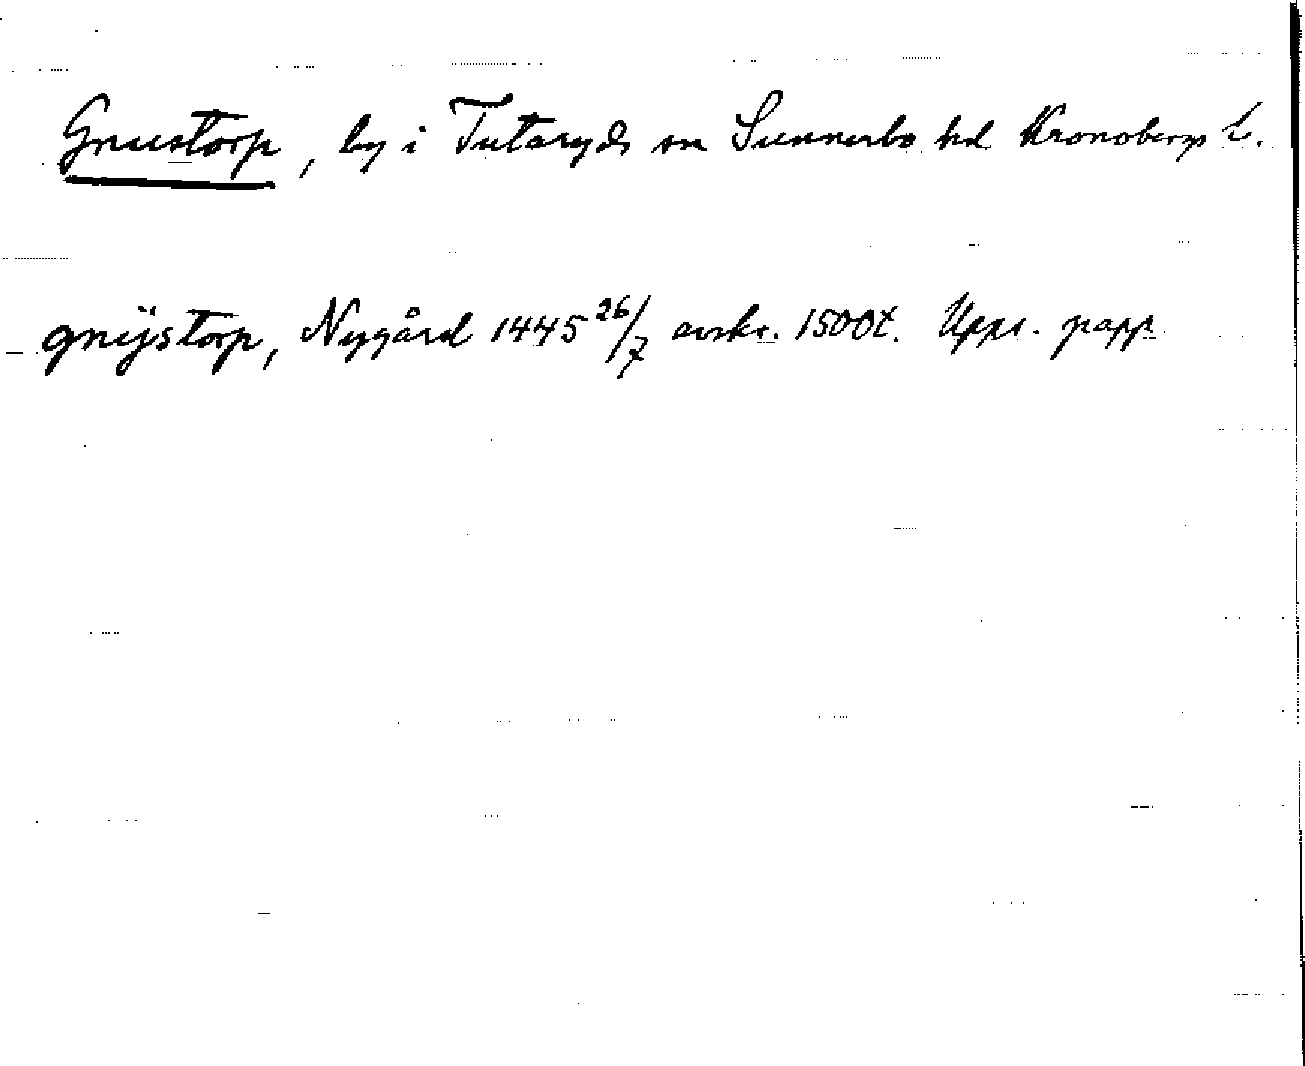 Gnustorp, by i Tutaryds sn Sunnerbo hd Kronobergs L.
gnijstorp, Nygård 1445 26/7 avskr. 1500t. Upps. papp